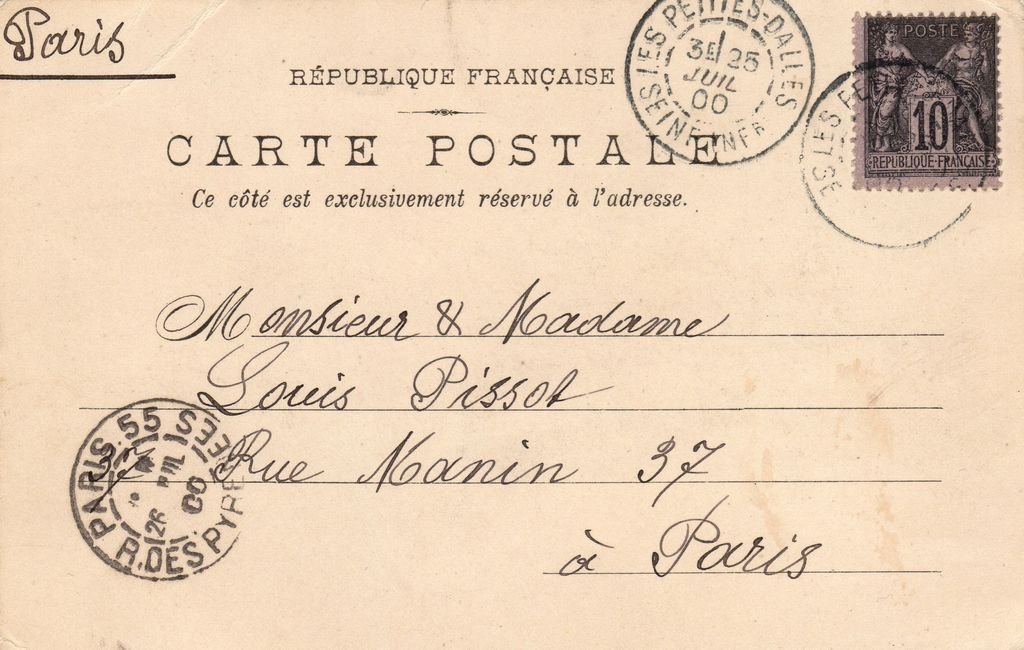 Paris
RÉPUBLIQUE FRANÇAISE
CARTE POSTALE
Ce côté est exclusivement réservé à l'adresse.
LES PETITES-DALLES
3E 25
JUIL
00
SEINE INFRE
POSTE
10
REPUBLIQUE FRANÇAISE
LES
SE
Monsieur & Madame
Louis Pissot
37 Rue Manin 37
à Paris
PARIS.55
R.DES PYRENEES
26
JUIL
00